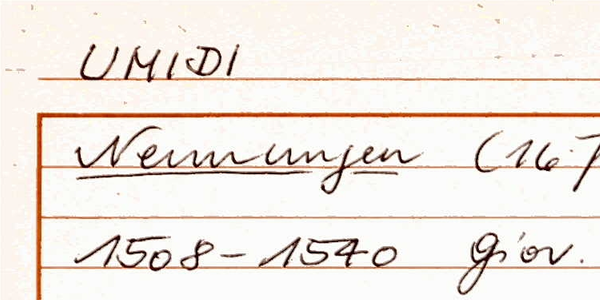 UMIDI
Nennungen (16.
1508-1540 Giov.